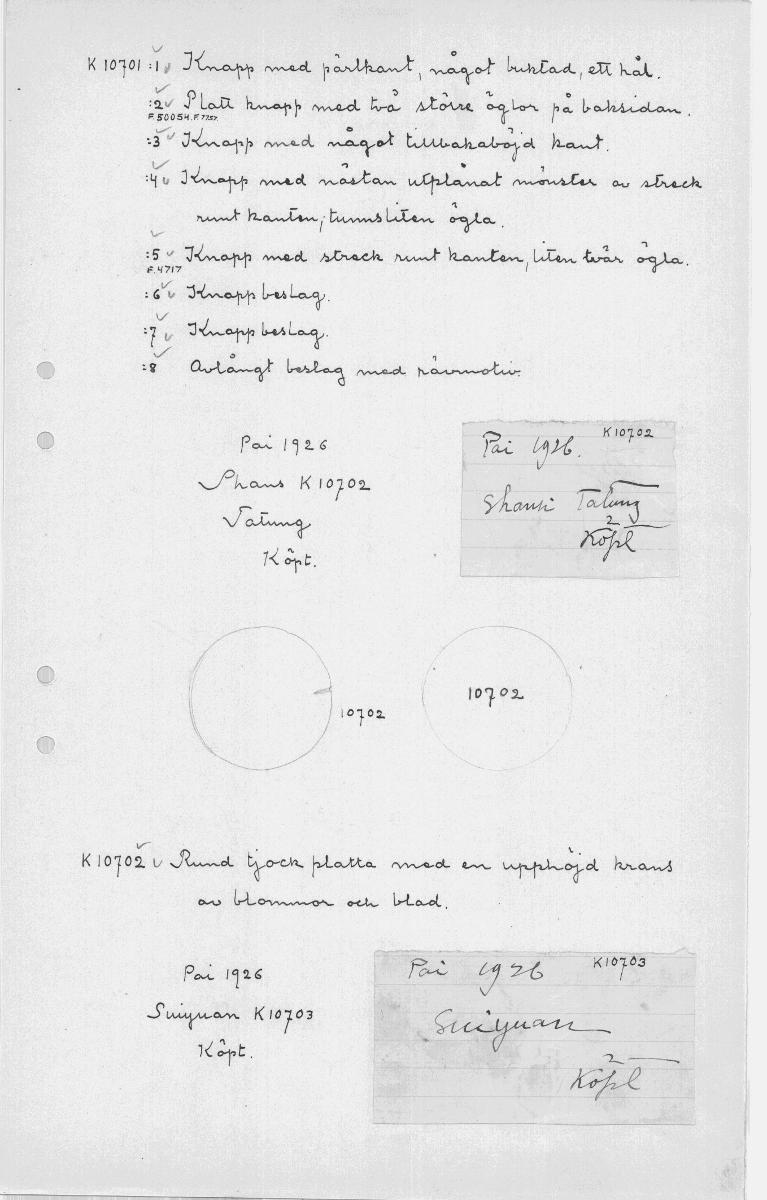 K 10701 :1 Knapp med pärlkant, något buktad, ett hål.
:2 Platt knapp med två större öglor på baksidan.
F.50054. F.7757.
:3 Knapp med något tillbakaböjd kant.
:4 Knapp med nästan utplånat mönster av streck
runt kanten, tunnsliten ögla.
:5 Knapp med streck runt kanten, liten tvär ögla.
F.4717
:6 Knappbeslag.
:7 Knappbeslag.
:8 Avlångt beslag med rävmotiv.
Pai 1926
Shans K 10702
Tatung
Köpt.
K10702
Pai 1926.
Shansi Tatung
2
Köpt
10702
10702
K10702 Rund tjock platta med en upphöjd krans
av blommor och blad.
Pai 1926
Suiyuan K10703
Köpt.
Pai 1926 K10703
Suiyuan
2
Köpt